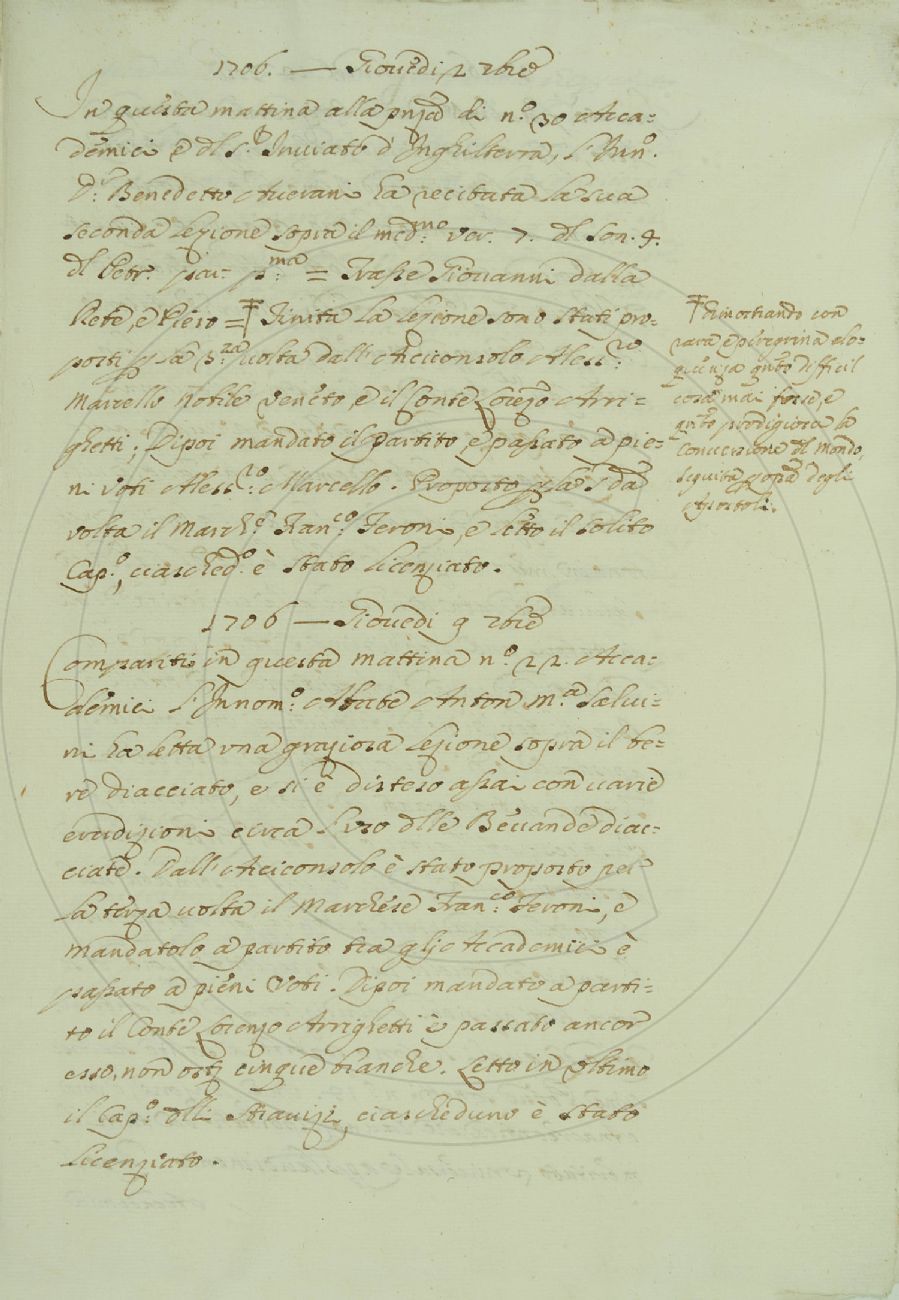 1706. — Giovedi 2 7bre
In questa mattina alla pnza di n.º 30 Acca=
demici e dl S.r Inviato d'Inghilterra, l'Inn.º
D.r Benedetto Averani ha recitata la sua
seconda lezione sopra il med.mo ver. 7. dl son. 4.
dl Petr. par. p.ma = Trasse Giovanni dalla
Rete, e Piero = ‡ Finita la lezione sono stati pro=
posti p la 3.za volta dall'Arciconsolo Aless.ro
Marcello Nobile veneto, e il Conte Lorenzo Arri=
ghetti; Dipoi mandato il partito è passato a pie=
ni voti Aless.ro Marcello. Proposto p la 2da
volta il March.e Fran.co Feroni, e letto il solito
Cap.º, ciasched.º è stato licenziato.
‡ dimostrando con
rara e peregrina elo=
quenza qnto difficil
cosa mai fosse, e
qnto prodigiosa la
conversione dl mondo,
seguita p opra degli
Apostoli.
1706 — Giovedi 9 7bre
Compariti in questa mattina n.º 22. Acca=
demici l'Innom.º Abate Anton M.a Salvi=
ni ha letta una graziosa lezione sopra il be=
re diacciato, e si è disteso assai con varie
erudizioni circa l'uso dlle Bevande diac=
ciate. Dall'Arciconsolo è stato proposto per
la terza volta il Marchese Fran.co Feroni, e
mandatolo a partito tra gli Accademici è
passato a pieni Voti. Dipoi mandato a parti=
to il Conte Lorenzo Arrighetti è passato ancor
esso, non ostti cinque bianche. Letto in ultimo
il Cap.º dlli Stravizi, ciascheduno è stato
licenziato.